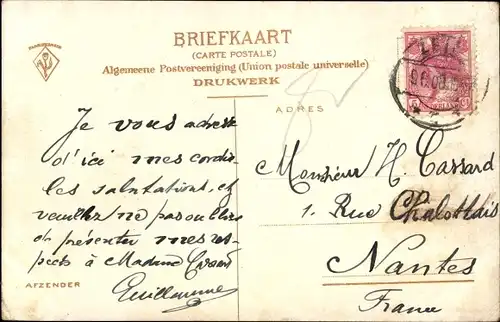 BRIEFKAART
(CARTE POSTALE)
Algemeene Postvereeniging (Union postale universelle)
DRUKWERK
ADRES
Je vous adresse
d'ici mes cordia
les salutations, et
veuillez ne pas oublier
de présenter mes res-
pects à Madame
Guillaume
AFZENDER
Monsieur H. Cassard
1. Rue Chalotais
Nantes
France